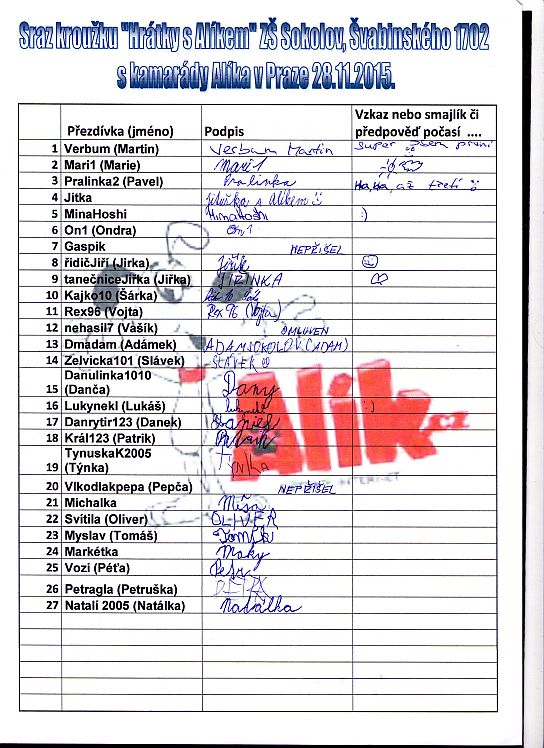 Sraz kroužku "Hrátky s Alíkem" ZŠ Sokolov, Švabinského 1702
s kamarády Alíka v Praze 28.11.2015.
Přezdívka (jméno) Podpis Vzkaz nebo smajlík či předpověď počasí ....
1 Verbum (Martin) Verbum Martin super jsem první
2 Mari1 (Marie) Mari1
3 Pralinka2 (Pavel) Pralinka Ha, Ha, až třetí
4 Jitka Jituška s Alíkem
5 MinaHoshi MinaHoshi :)
6 On1 (Ondra) On1
7 Gaspik NEPŘIŠEL
8 řidičJiří (Jirka) Jiřík
9 tanečniceJiřka (Jiřka) JIŘINKA
10 Kajko10 (Šárka)
11 Rex96 (Vojta) Rex 96 (Vojta)
12 nehasil7 (Vašík) OMLUVEN
13 Dmadam (Adámek) ADAMSOKOLOV (ADAM)
14 Zelvicka101 (Slávek) SLÁVEK
15 Danulinka1010 (Danča) Dany
16 Lukynekl (Lukáš) lukynekl :)
17 Danrytir123 (Danek) Daniel
18 Král123 (Patrik) Patrik
19 TynuskaK2005 (Týnka) TÝNKA
20 Vlkodlakpepa (Pepča) NEPŘIŠEL
21 Michalka Míša
22 Svítila (Oliver) OLIVER
23 Myslav (Tomáš) Tomík
24 Markétka Maky
25 Vozi (Péťa) Petr
26 Petragla (Petruška)
27 Natalí 2005 (Natálka) Natálka
Alik.cz
INTERNET